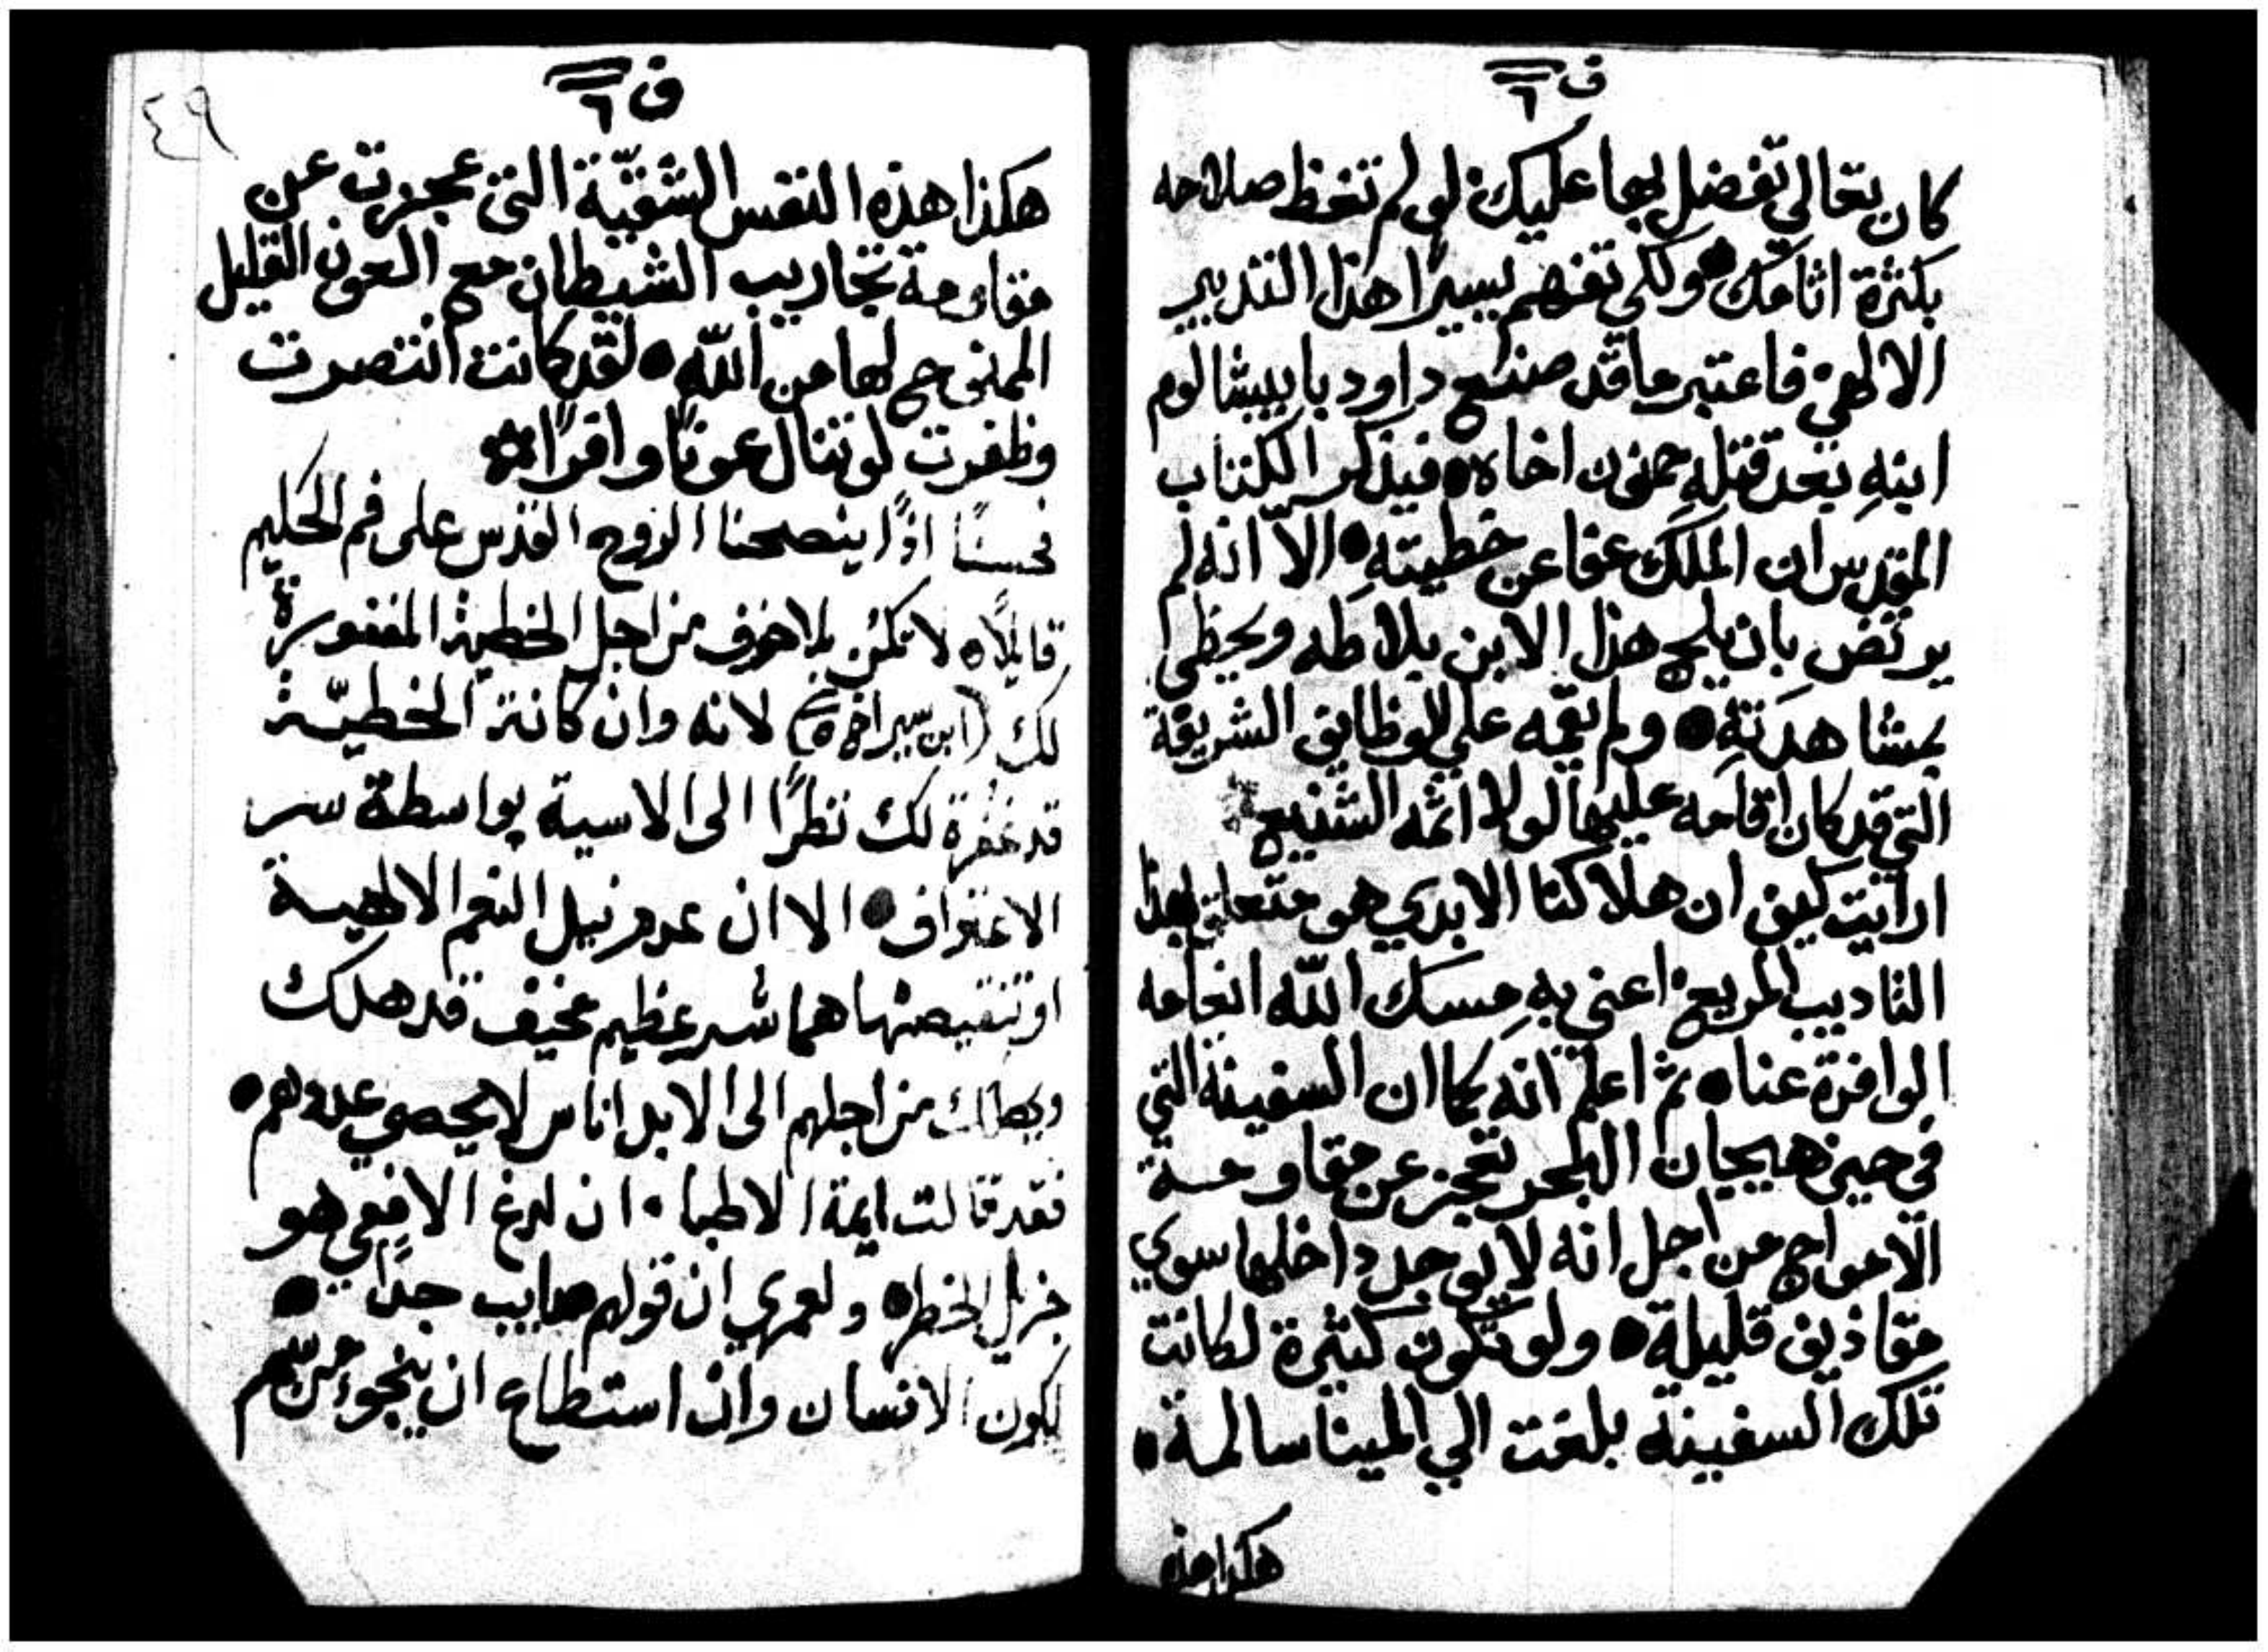 ف ٦
كان تعالي تفضل بها عليك لو لم تغظ صلاحه
بكثرة اثامك • ولكي تفهم يسيرًا هذا التدبير
الالهي فاعتبر ما قد صنع داود بابيشالوم
ابنهِ بعد قتلهِ حمنون اخاه • فيذكر الكتاب
المقدس ان الملك عفا عن خطيتهِ • الاّ انه لم
يرتض بان يلج هذا الابن بلاطه ويحظي
بمشاهدتهِ • ولم يقمه علي الوظايف الشريفة
التي قد كان اقامه عليها لولا اثمه الشنيع
ارايت كيف ان هلاكنا الابدي هو متعلق بهذا
التاديب المريع اعني بهِ مسك اللّه انعامه
الوافرة عنا • ثم اعلم انه كما ان السفينة التي
في حين هيجان البحر تعجز عن مقاومة
الامواج من اجل انه لا يوجد داخلها سوي
مقاذيف قليلة • ولو تكون كثيرة لكانت
تلك السفينة بلغت الي المينا سالمة •
هكذا هذه
٤٩
ف ٦
هكذا هذه النفس الشقيّة التي عجزت عن
مقاومة تجاريب الشيطان مع العون القليل
الممنوح لها من اللّه • لقد كانت انتصرت
وظفرت لو تنال عونًا وافرًا
فحسنًا اذًا ينصحنا الروح القدس على فم الحكيم
قايلًا • لا تكن بلا خوف من اجل الخطية المغفورة
لك (ابن سيراخ ص ٥) لانه وان كانت الخطيّة
قد غفرة لك نظرًا الى الاسية بواسطة سر
الاعتراف • الا ان عدم نيل النعم الالهية
او تنقيصها هما شر عظيم مخيف قد هلك
ويهلك من اجلهم الى الابد اناس لا يحصي عددهم •
فقد قالت ايمة الاطبا • ان لدغ الافعي هو
جزيل الخطر • ولعمري ان قولهم صايب جدًا •
لكون الانسان وان استطاع ان ينجو من سّم